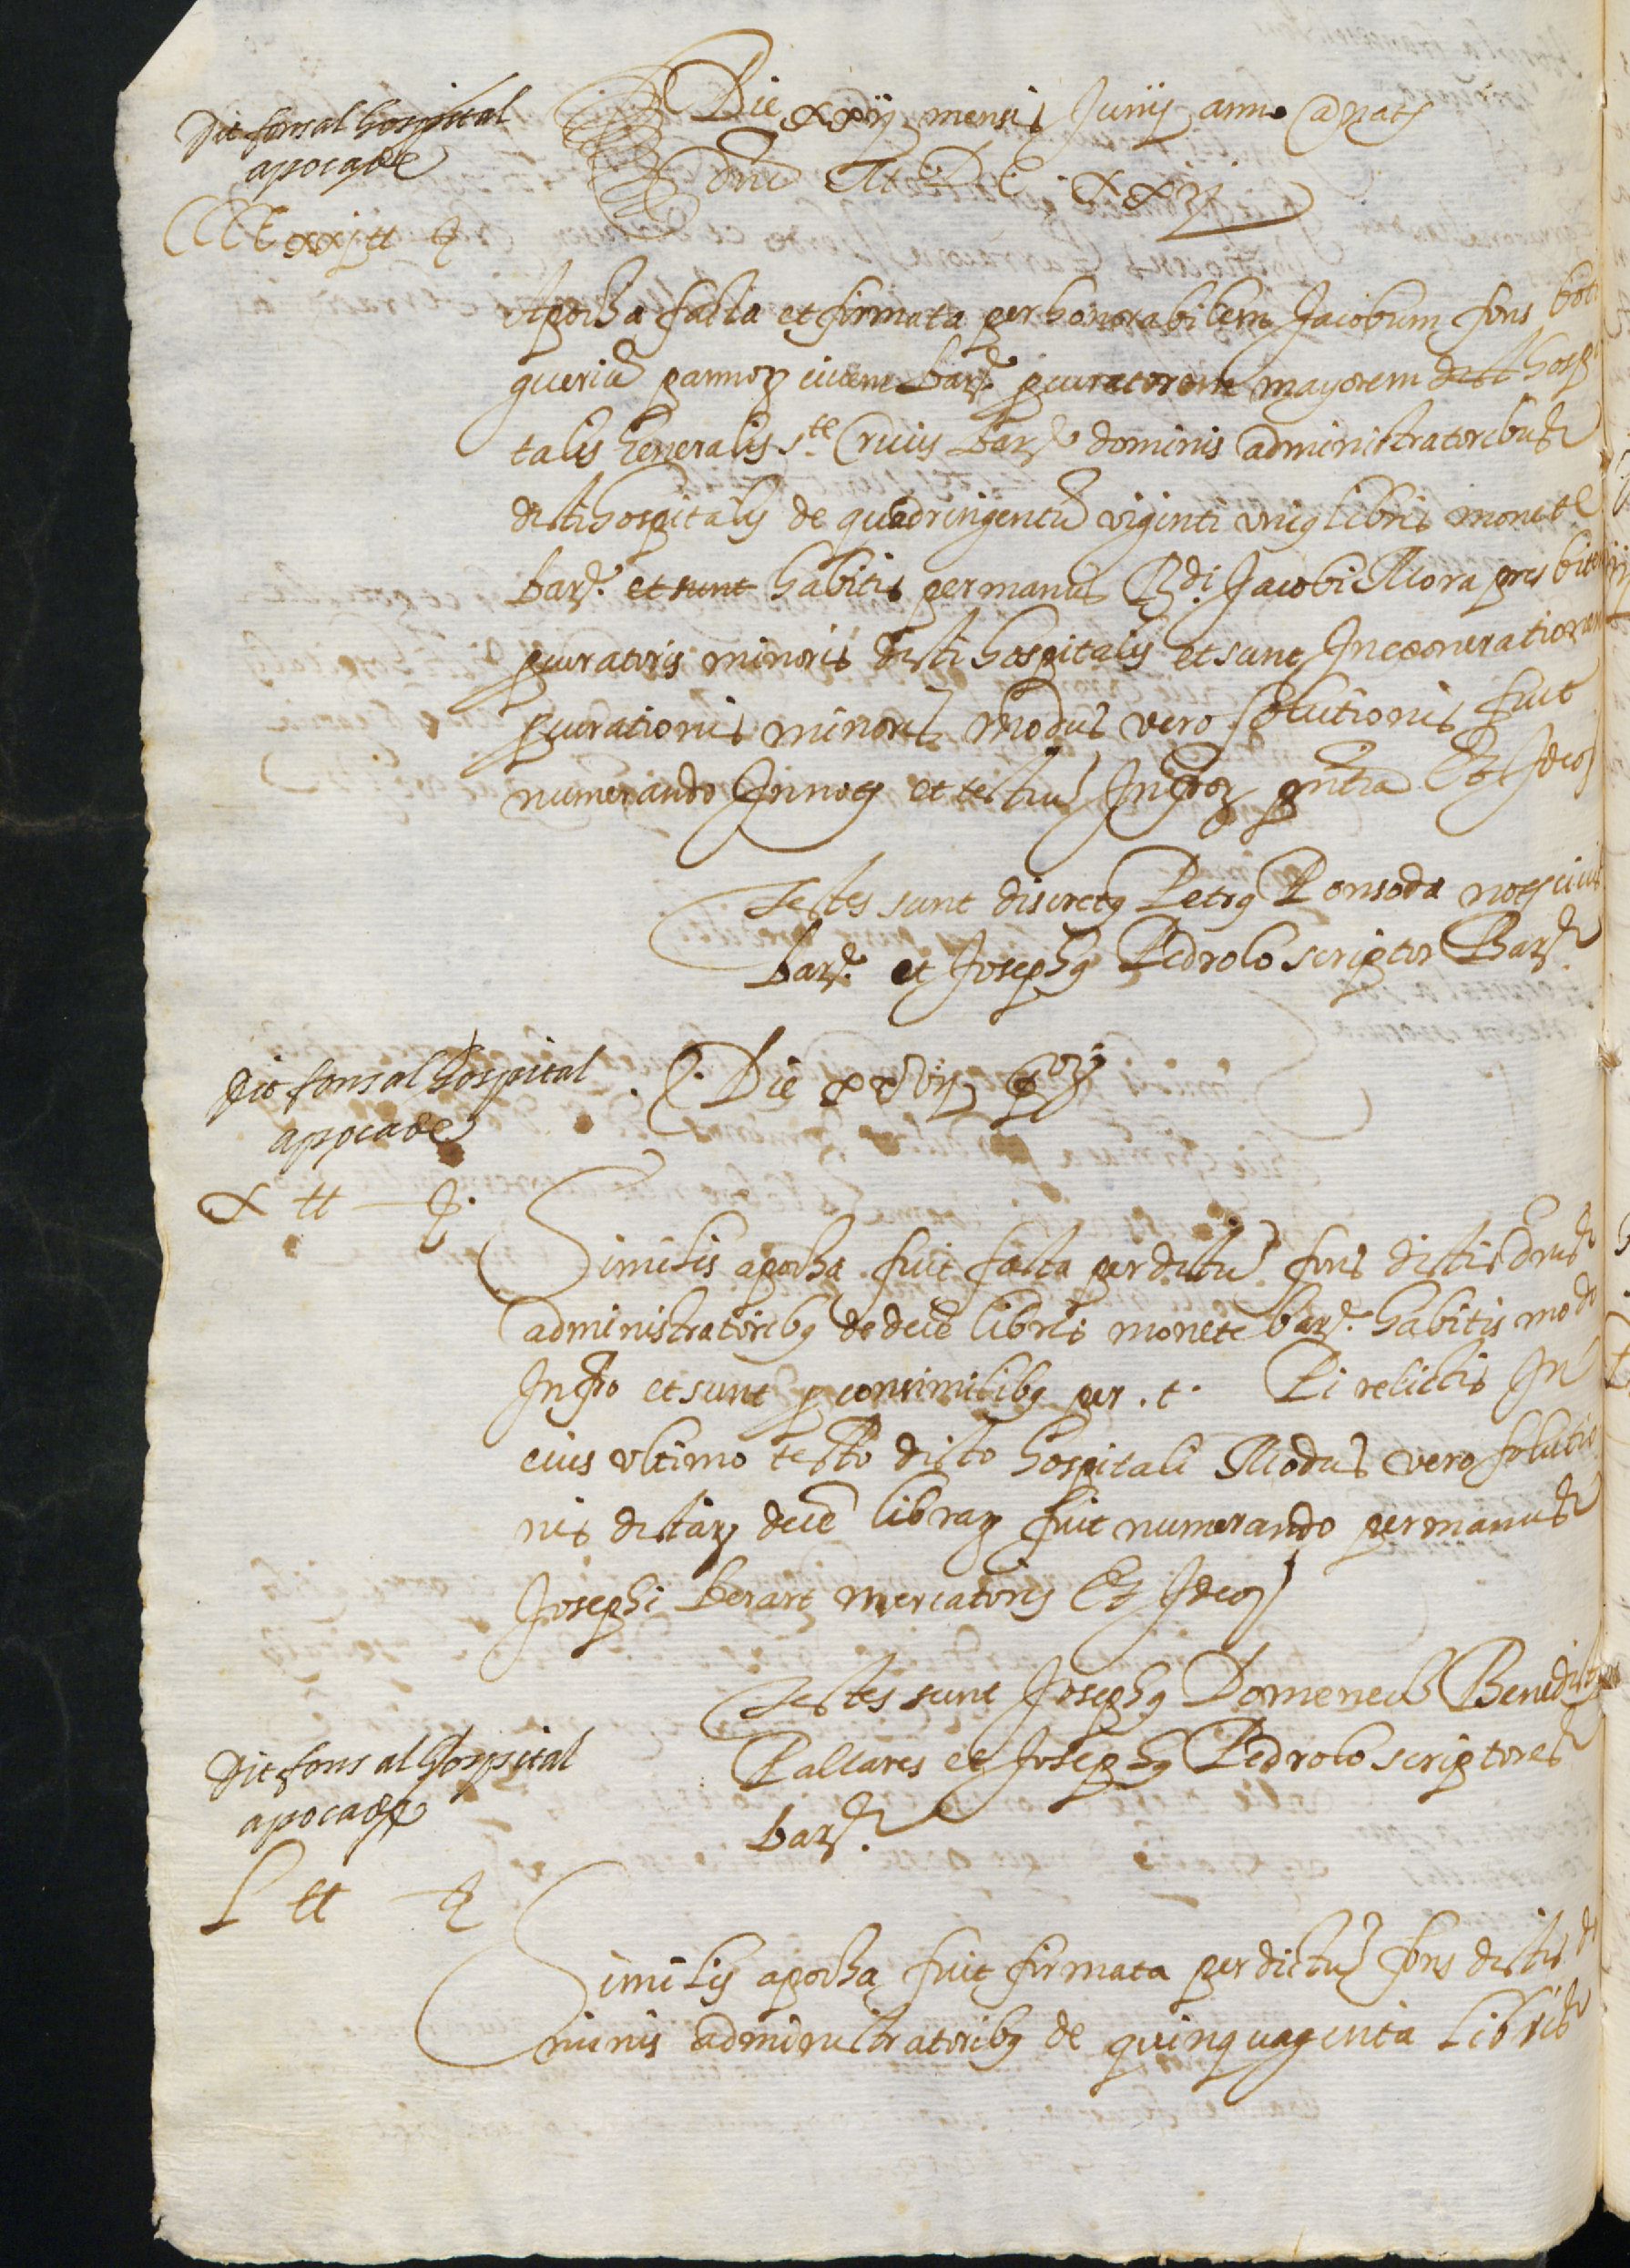 Dit fons al hospital
apoca de
CCCCxxj ll ꝭ
Die xxij mensis Junij anno a natꝭ
Dni M D C xxvj
Apocha facta et firmata per honorabilem Jacobum fons boti
gueriū pannoꝝ civem barꝰ. ꝓcuratorem mayorem dicti hospi
talis generalis Ste Crucis Barꝰ dominis administratoribus
dicti hospitalis de quadringentū viginti vnis libris monete
barꝰ. et sunt habitis per manus Rdi. Jacobi Mora presbiteri
ꝓcuratoris minoris dicti hospitalis et sunt In exonerationem
ꝓcurationis minoris Modus vero solutionis fuit
numerando In notꝭ et testiū Infꝛoꝝ pntia Et Ideo
Testes sunt discretꝰ Petrꝰ Ponsoda notꝭ civis
barꝰ. et Josephꝰ Pedrolo scriptor Barꝰ
Dit fons al hospital
apoca de
x ll ꝭ
Die xxvij
Similis apocha fuit facta per dictū fons dictis dnis
administratoribꝰ de decē libris monete barꝰ. habitis modo
Infꝛo et sunt ꝓ consimilibꝰ per .t. Pi relictis In
eius vltimo testto dicto hospitali Modus vero solutio
nis dictaꝝ decē libraꝝ fuit numerando per manus
Josephi Berart mercatoris Et Ideo
Testes sunt Josephꝰ Domenech Benedictꝰ
Pallares et Josephꝰ Pedrolo scriptores
barꝰ.
Dit fons al hospital
apoca de
L ll ꝭ
Similis apocha fuit firmata per dictū fons dictis do
minis administratoribꝰ de quinquaginta libris